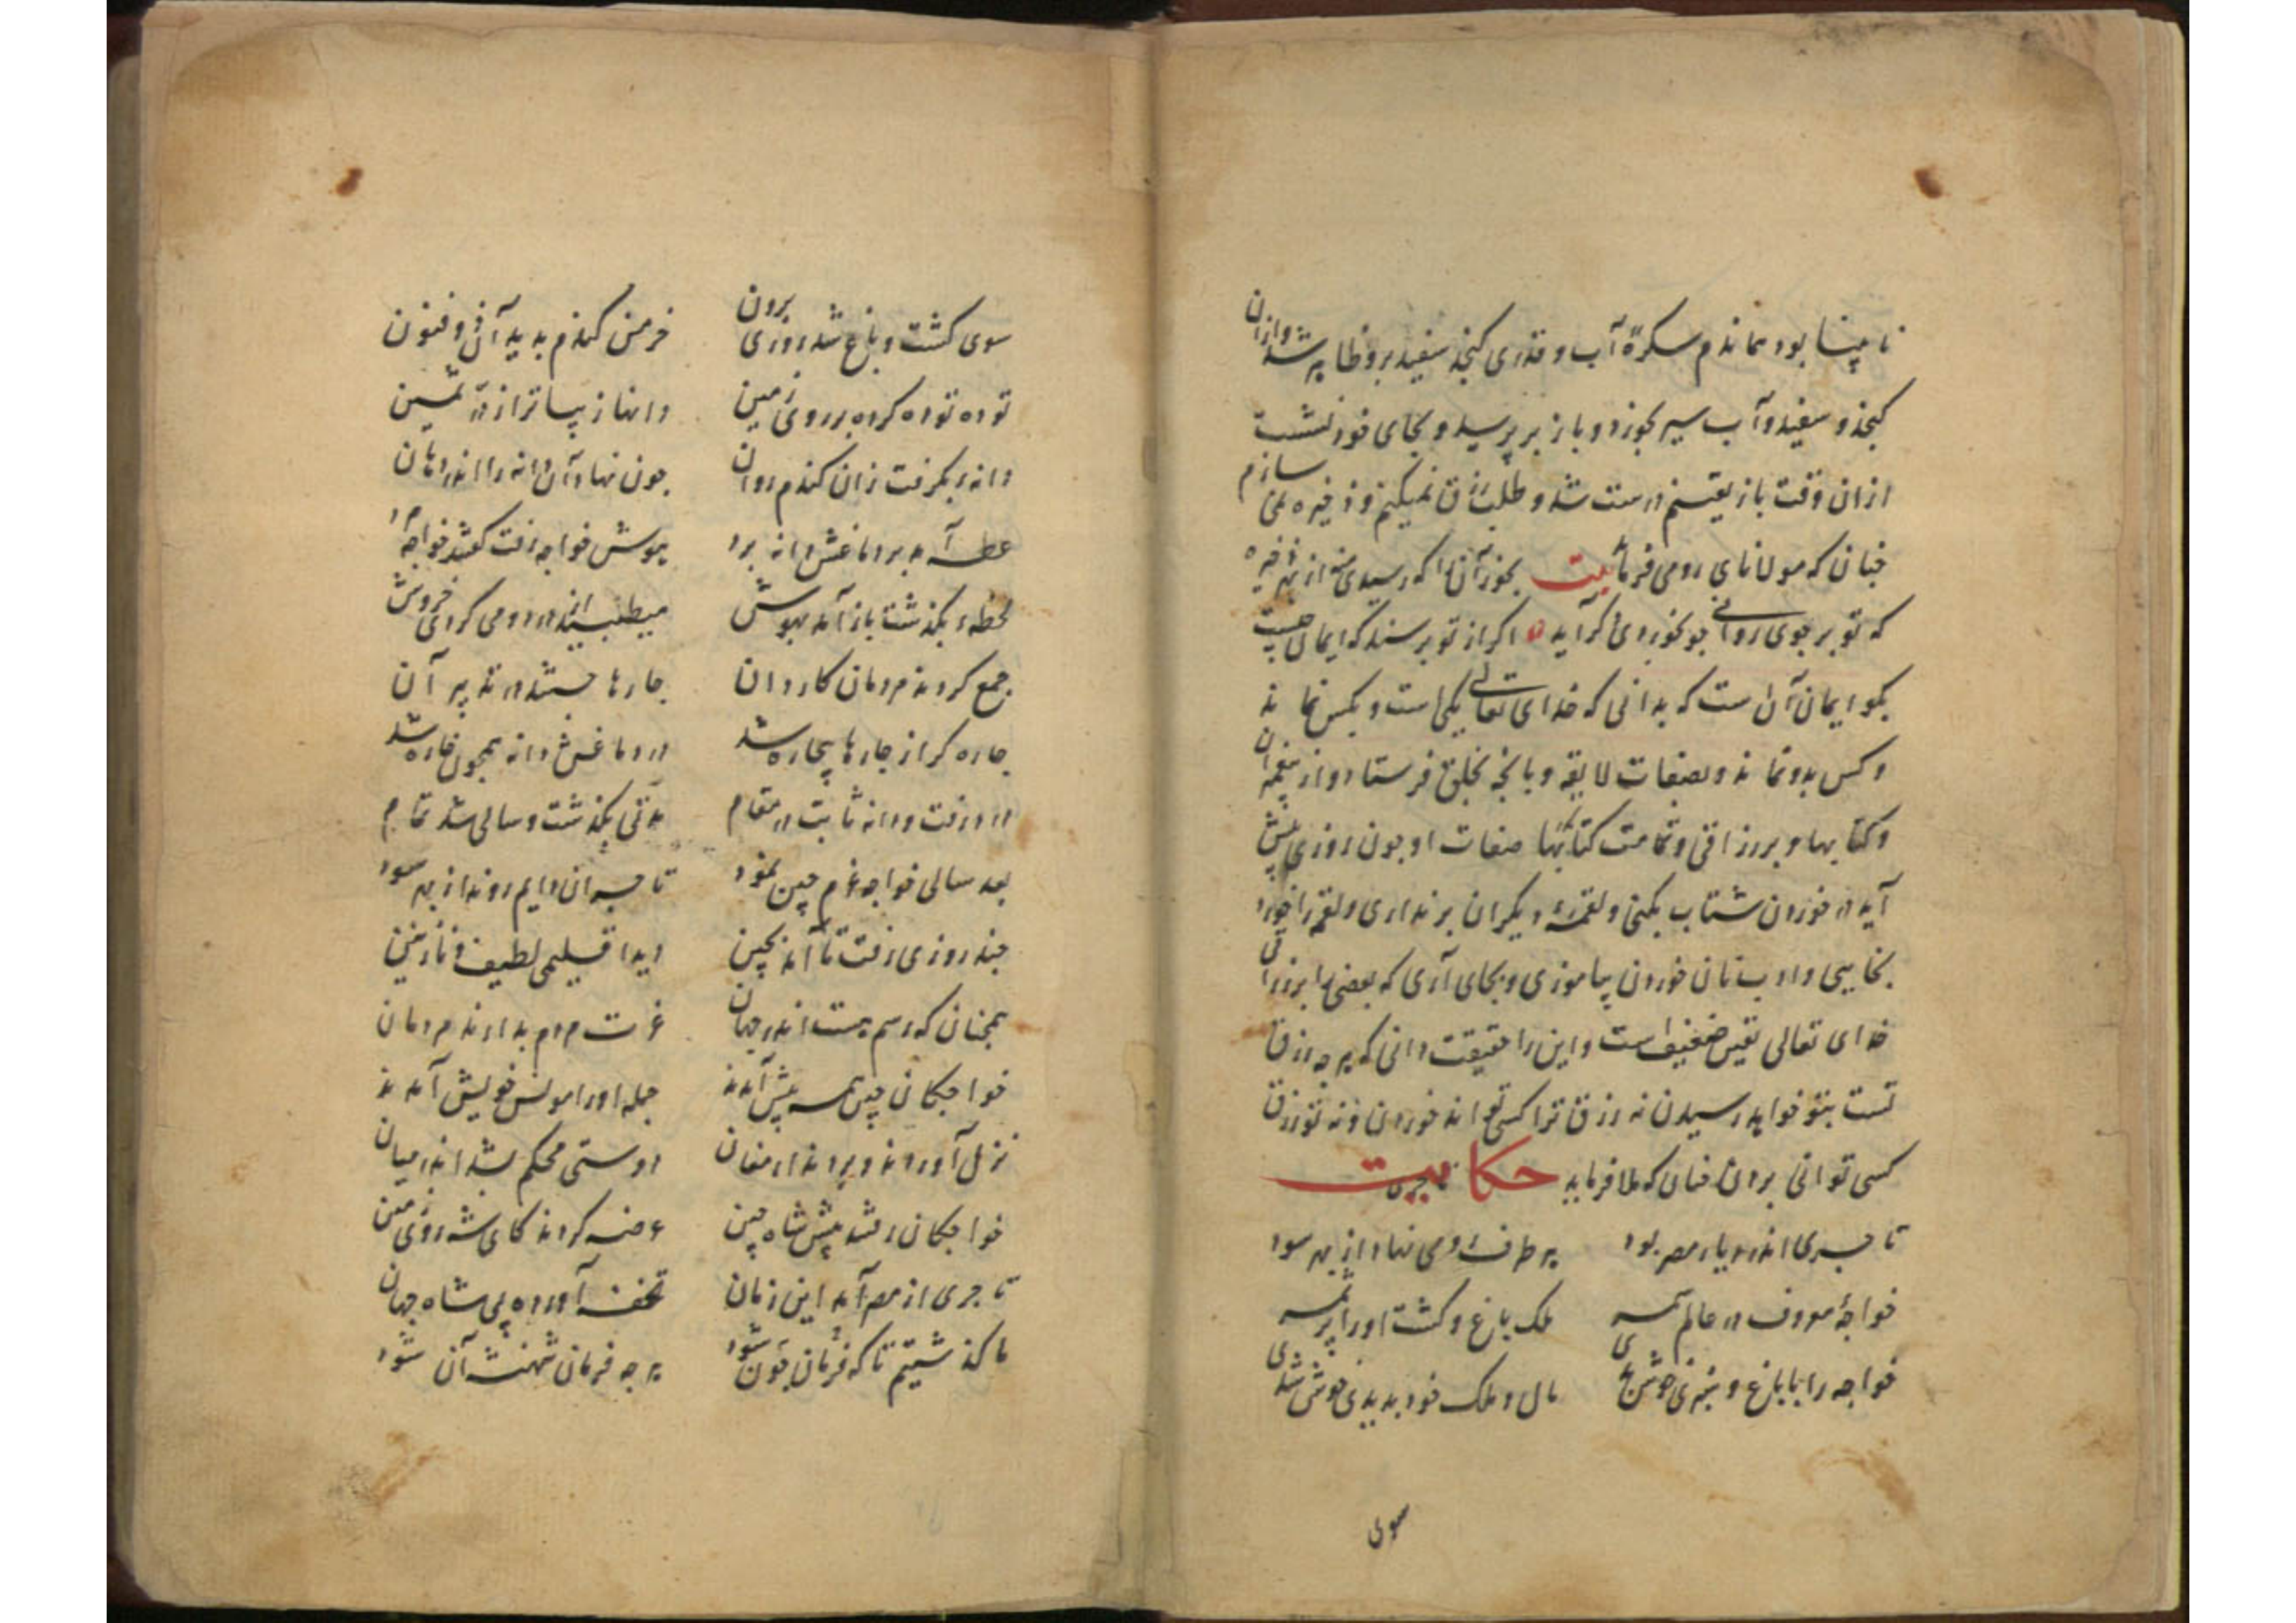 نابینا بود بماندم سکرهٔ آب و قدری کنجد سفید برو ظاهر شد و ازان
کنجد و سفید و آب سیر بخورد و باز بر پرید و بجای خود نشست
ازان وقت باز یقینم درست شد و طلب رزق نمیکنم و ذخیره نمی سازم
چنان که مولانای رومی فرماید بیت بخور آن را که رسیدی از بهر ذخیره
که تو بر جوی روانی چو بخوردی گر آید اگر از تو پرسند که ایمان چیست
بگو ایمان آن است که بدانی که خدای تعالی یکی است و بکس نماند
و کس بدو نماند و بصفات لایقه و بانچه بخلق فرستاد و از پیغمبران
و کتابها و بر رزاقی و تمامت کتابها صفات او چون روزی پیش
آید در خوردن شتاب نکنی و لقمهٔ دیگران برنداری و لقمه را خورد
بخایی و ادب نان خوردن بیاموزی و بجای آری که بعضی را بر رزاقی
خدای تعالی یقین ضعیف است و این را حقیقت دانی که هر چه رزق
تست بتو خواهد رسیدن نه رزق ترا کسی تواند خوردن و نه تو رزق
کسی توانی بردن چنان که ملا فرماید حکایت
تاجری اندر دیار مصر بود هر طرف رومی نهاد از بهر سود
خواجهٔ معروف در عالم همه ملک باغ و کشت او را بر همه
خواجه را با باغ و سبزی خوش بدی مال و ملک خود بدیدی خوش شدی
سوی
سوی کشت و باغ شد روزی برون خرمن گندم بدید آن ذو فنون
توده توده کرده بر روی زمین دانها زیباتر از در ثمین
دانه بگرفت زان گندم روان چون نهاد آن دانه را اندر دهان
عطسه آمد بر دماغش دانه برد هوش خواجه رفت گفتند خواجه مرد
لحظه بگذشت باز آمد بهوش میطپید از درد و می کردی خروش
جمع کردند مردمان کاردان چارها جستند در تدبیر آن
چاره گر از چارها بیچاره شد در دماغش دانه همچون خاره شد
درد رفت و دانه ثابت در مقام مدتی بگذشت و سالی شد تمام
بعد سالی خواجه عزم چین نمود تاجران دایم روند از بهر سود
چند روزی رفت تا آمد بچین دید اقلیمی لطیف و نازنین
همچنان که رسم هست اندر جهان عزت مردم بدارند مردمان
خواجگان چین همه پیش آمدند جمله او را مونس خویش آمدند
نزل آوردند و بردند ارمغان دوستی محکم شد اندر میان
خواجگان رفتند پیش شاه چین عرضه کردند کای شه روی زمین
تاجری از مصر آمد این زمان تحفه آورده پی شاه جهان
ما گذشتیم تا که فرمان چون شود هر چه فرمان شهنشه آن شود